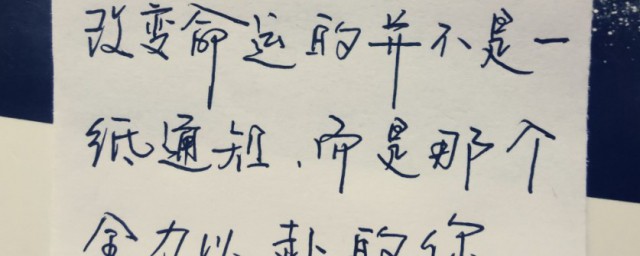 改变命运的并不是一
纸通知、而是那个
全力以赴的你